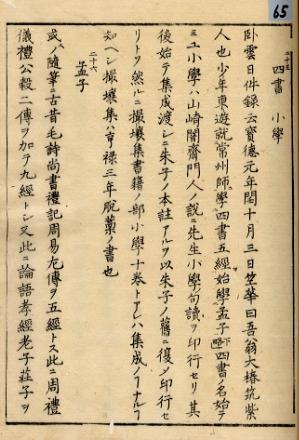 65
二十五
四書 小學
臥雲日件録云寳德元年閏十月三日竺華曰吾翁大椿筑紫
人也少年東遊就常州師學四書五經始學孟子下畧四書ノ名始テ
ミユ小學ハ山崎闇齋門人ノ説ニ先生小學句讀ヲ印行セリ其
後始テ集成渡レニ朱子ノ本註アルヲ以朱子ノ舊ニ復メ印行セ
リト又然ルニ撮壤集書籍ノ部小學十卷トアレハ集成ノアナルヿ
知ヘシ撮壤集ハ享禄三年脱藁ノ書也
二十六
孟子
或ノ隨筆ニ古昔毛詩尚書禮記周易左傳ヲ五經トス此ニ周禮
儀禮公穀二傳ヲ加テ九經トシ又此ニ論語孝經老子莊子ヲ